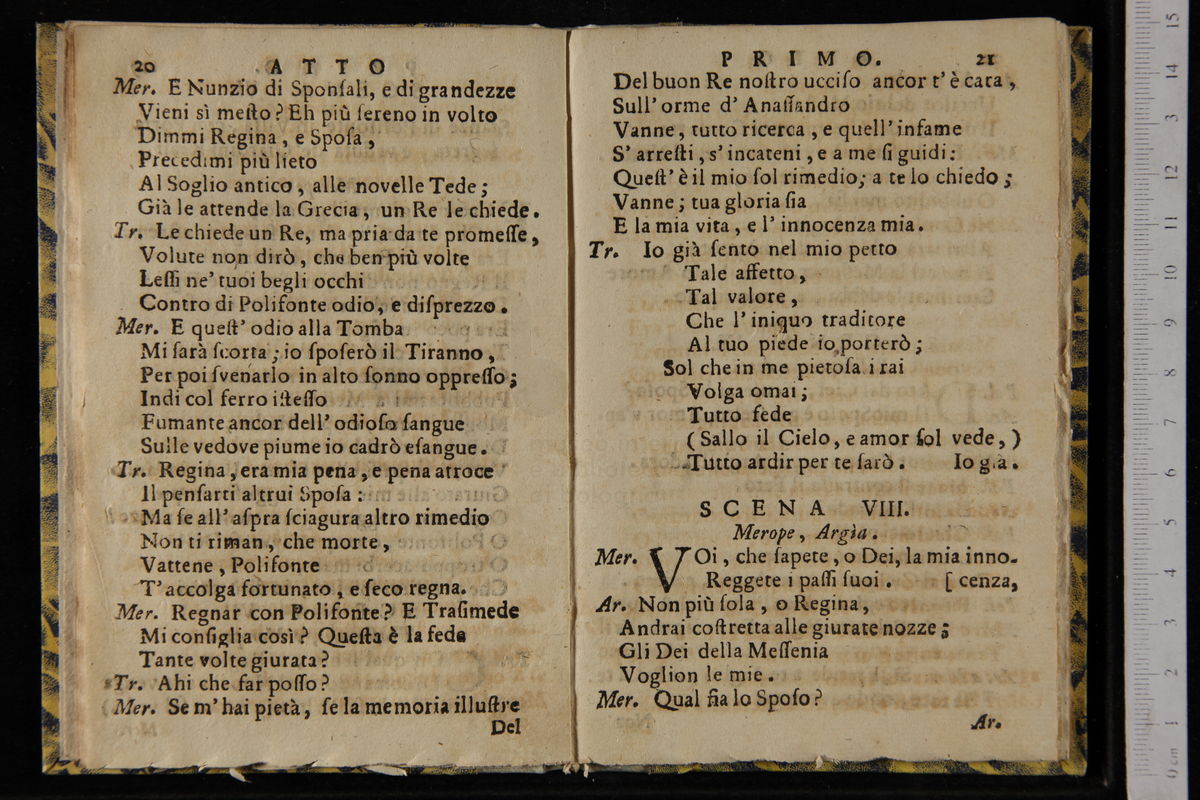 20 ATTO
Mer. E Nunzio di Sponſali, e di grandezze
Vieni sì meſto? Eh più ſereno in volto
Dimmi Regina, e Spoſa,
Precedimi più lieto
Al Soglio antico, alle novelle Tede;
Già le attende la Grecia, un Re le chiede.
Tr. Le chiede un Re, ma pria da te promeſſe,
Volute non dirò, che ben più volte
Leſſi ne' tuoi begli occhi
Contro di Polifonte odio, e diſprezzo.
Mer. E queſt' odio alla Tomba
Mi ſarà ſcorta; io ſpoſerò il Tiranno,
Per poi ſvenarlo in alto ſonno oppreſſo;
Indi col ferro iſteſſo
Fumante ancor dell' odioſo ſangue
Sulle vedove piume io cadrò eſangue.
Tr. Regina, era mia pena, e pena atroce
Il penſarti altrui Spoſa:
Ma ſe all' aſpra ſciagura altro rimedio
Non ti riman, che morte,
Vattene, Polifonte
T' accolga fortunato, e ſeco regna.
Mer. Regnar con Polifonte? E Traſimede
Mi conſiglia così? Queſta è la fede
Tante volte giurata?
Tr. Ahi che far poſſo?
Mer. Se m' hai pietà, ſe la memoria illuſtre
Del
PRIMO. 21
Del buon Re noſtro ucciſo ancor t' è cara,
Sull' orme d' Anaſſandro
Vanne, tutto ricerca, e quell' infame
S' arreſti, s' incateni, e a me ſi guidi:
Queſt' è il mio ſol rimedio; a te lo chiedo;
Vanne; tua gloria ſia
E la mia vita, e l' innocenza mia.
Tr. Io già ſento nel mio petto
Tale affetto,
Tal valore,
Che l' iniquo traditore
Al tuo piede io porterò;
Sol che in me pietoſa i rai
Volga omai;
Tutto fede
(Sallo il Cielo, e amor ſol vede,)
Tutto ardir per te ſarò. Io già.
SCENA VIII.
Merope, Argia.
Mer. VOi, che ſapete, o Dei, la mia inno-
Reggete i paſſi ſuoi. [cenza,
Ar. Non più ſola, o Regina,
Andrai coſtretta alle giurate nozze;
Gli Dei della Meſſenia
Voglion le mie.
Mer. Qual ſia lo Spoſo?
Ar.
15
14
13
12
11
10
9
8
7
6
5
4
3
2
1
0 cm